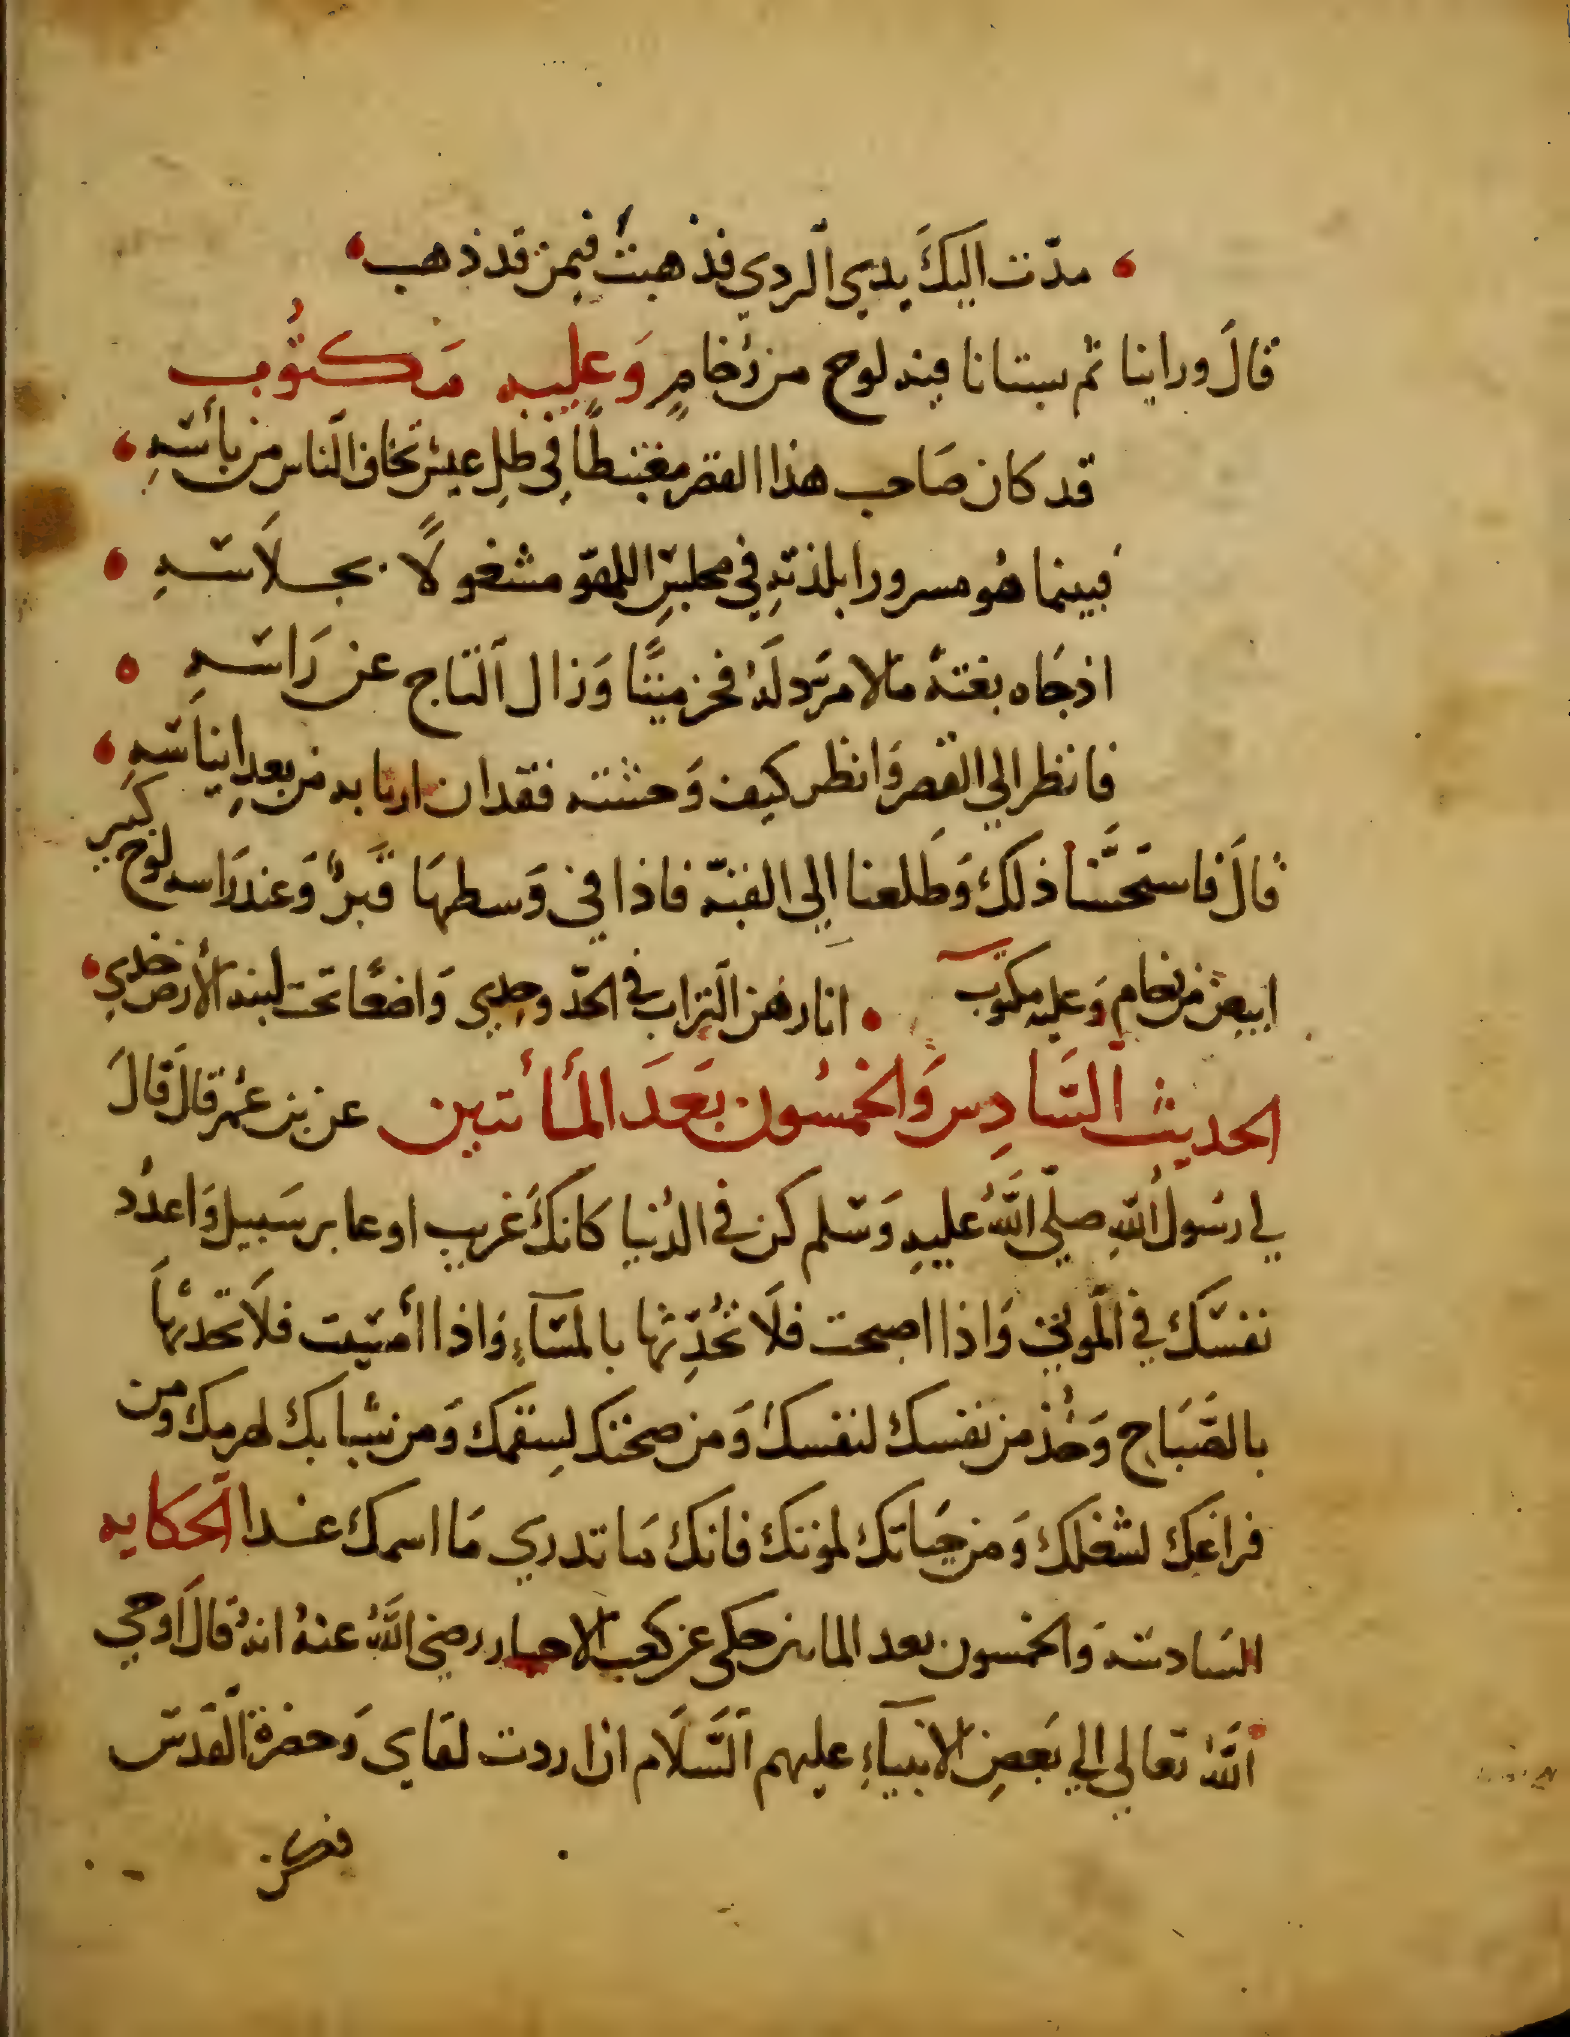 مدّت اليكَ يدي الردي فذهبتُ فيمن قد ذهب
قالَ وراينا ثم بستانا فيه لوح من رُخامٍ وَعليه مَكتُوب
قد كان صَاحب هذا القصر مغتبطًا في ظلِ عيش تخاف الناس من بأسَهِ
فبينما هُو مسرورا بلذتهِ في مجلسِ اللهو مشغولًا بجلاسهِ
اذ جَاه بغتةً ما لا مرَد لهُ فخر ميتًا وَزال التاج عن رَاسَهِ
فانظر الي القصر وَانظر كيف وَحشته فقدان اربابه من بعدِ ايناسَهِ
قالَ فاستحسَّنا ذلكَ وَطلعنا الي القبة فاذا في وَسطهَا قَبرٌ وَعند رَاسه لوح كَبير
ابيض من رخام وَعليه مكتوب انا رهن التراب في اللحد وحِدي وَاضعًا تحت لبنة الأرض خدي
الحديث السَّادِس وَالخمسُون بَعدَ المأتين عن بن عُمر قالَ قالَ
لي رسُول اللهِ صلّى اللهُ عليهِ وَسَلم كن في الدُنيا كانكَ غريب او عابر سَبيل وَاعدُد
نفسَك في الموتي وَاذا اصبحت فلَا تحُدِّثها بالمسَآءِ وَاذا أمسَيت فلَا تحدثهَا
بالصَّبَاح وَخُذ من نفسك لنفسكُ وَمن صحتك لسِقمك وَمن شبابك لهرمك وَمن
فراغِك لشغلك وَمن حيَاتك لموتك فانكَ مَا تدري مَا اسمكَ غدا الحكَايه
السَادسَة وَالخمسون بعد الماتين حكى عن كعب الاحبار رضي اللهُ عنهُ انهُ قالَ اَوحي
اللهُ تعَالي الي بَعضِ الانبيآءِ عليهم السَّلَام ان اردت لقَاي وَحضرة القدسَ
فكن